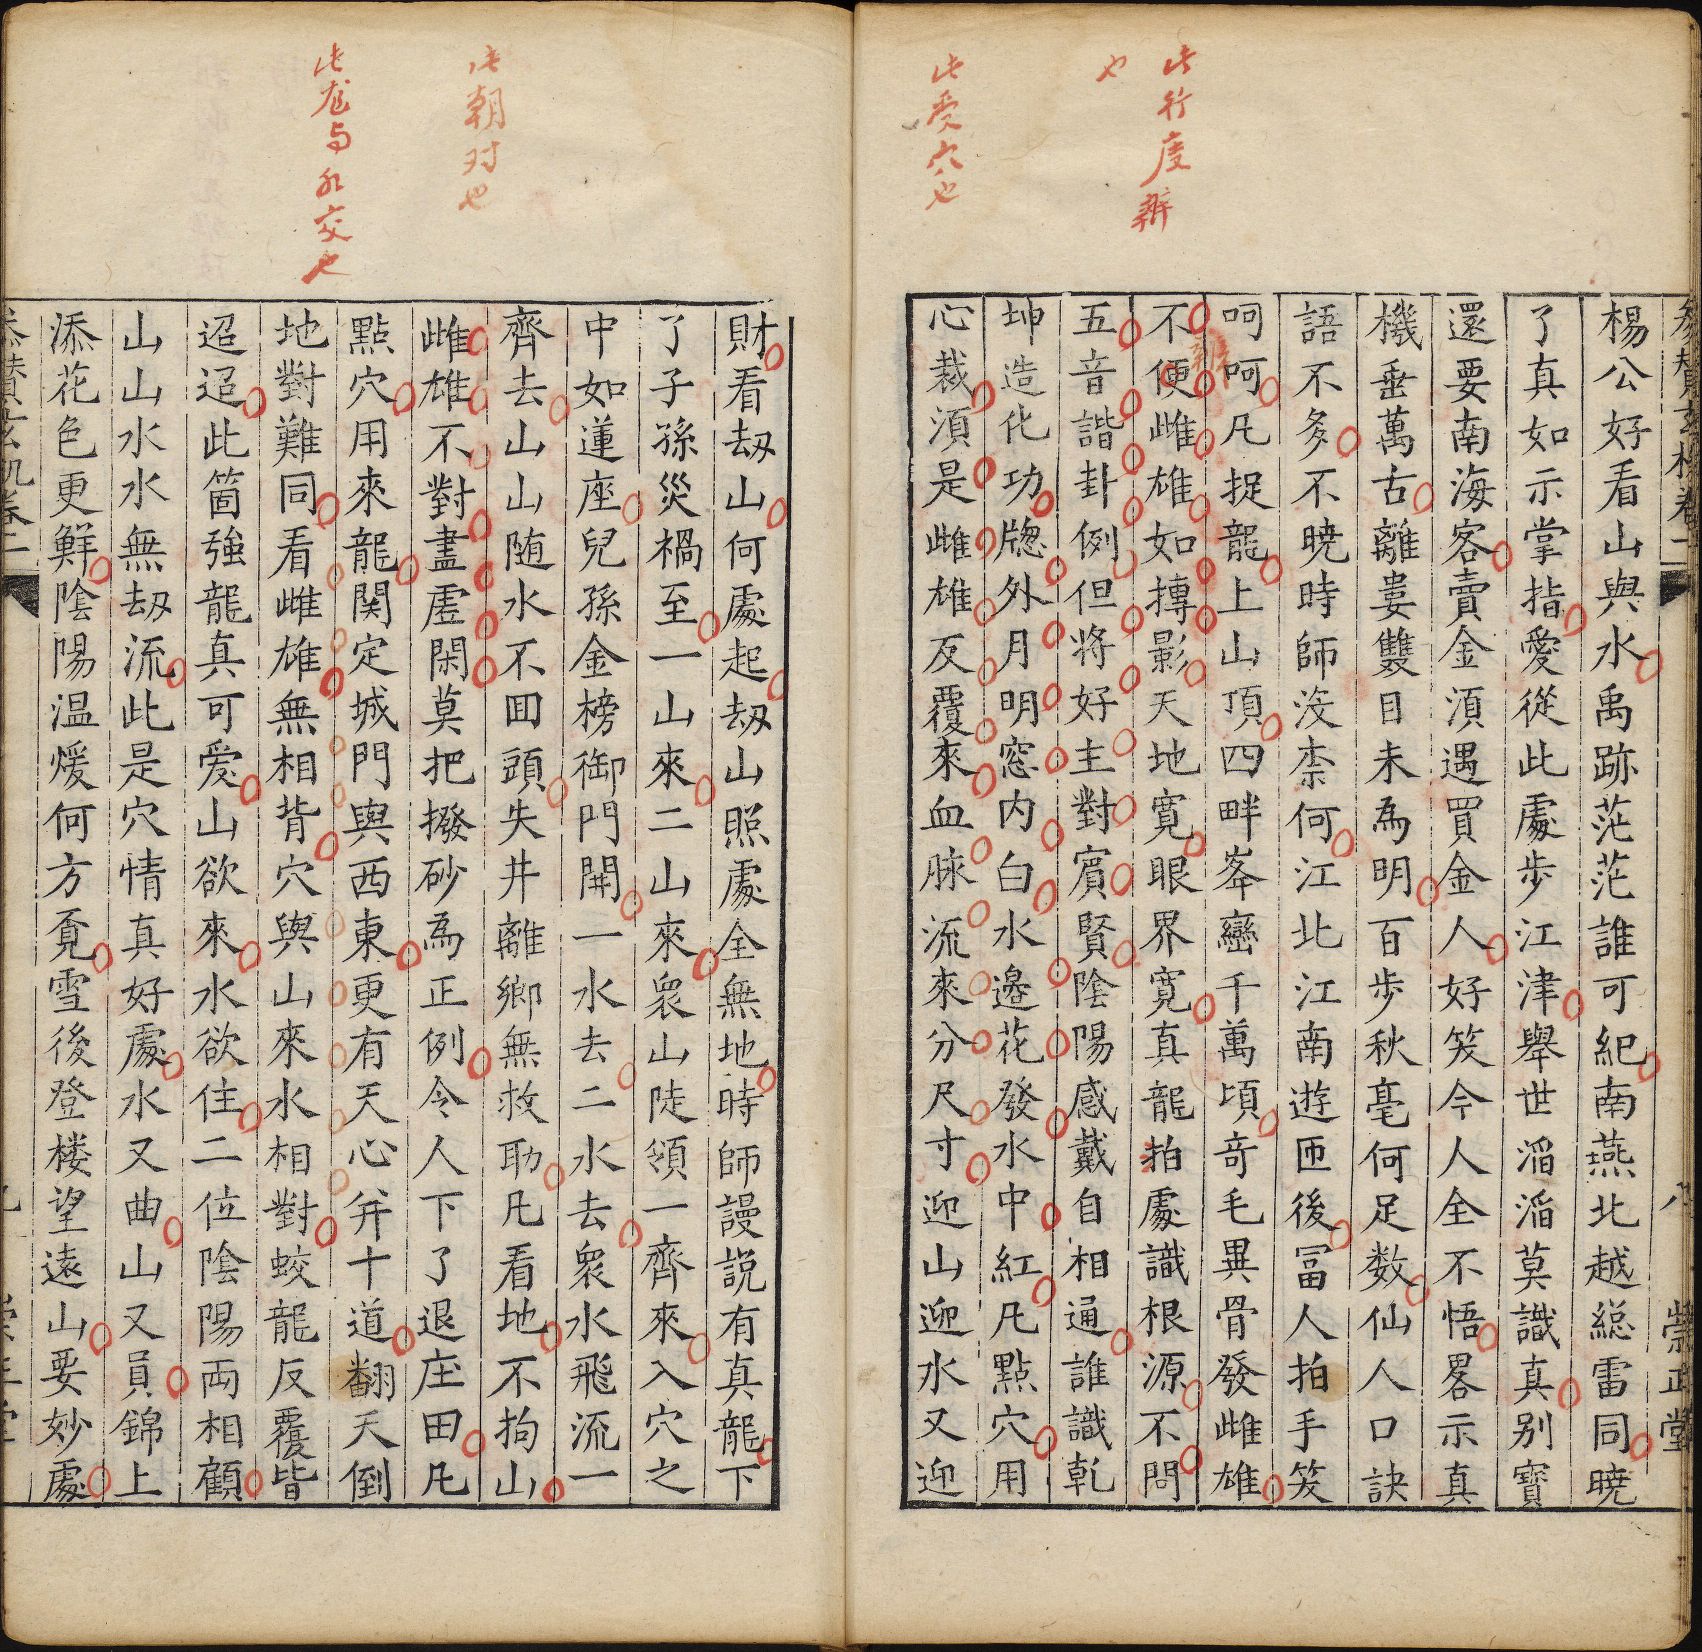 此行度辦
也
此受穴也
崇正堂
楊公好看山與水禹跡茫茫誰可紀南燕北越総雷同曉
了真如示掌指愛從此處步江津舉世滔滔莫識真別寶
還要南海客賣金湏遇買金人好笑今人全不悟畧示真
機垂萬古離婁雙目未為明百步秋毫何足数仙人口訣
語不多不曉時師没柰何江北江南遊匝後冨人拍手笑
呵呵凡捉龍上山頂四畔峯巒千萬頃竒毛異骨發雌雄
不便雌雄如摶影天地寛眼界寛真龍拍處識根源不問
五音諧卦例但将好主對賔賢陰陽感戴自相通誰識乾
坤造化功牕外月明窓内白水邉花發水中紅凡點穴用
心裁湏是雌雄反覆來血脉流來分尺寸迎山迎水又迎
此朝对也
此龙与水交也
財看刼山何處起刼山照處全無地時師謾説有真龍下
了子孫災禍至一山來二山來衆山陡領一齊來入穴之
中如蓮座兒孫金榜御門開一水去二水去衆水飛流一
齊去山山随水不囬頭失井離鄉無救助凡看地不拘山
雌雄不對盡虛閑莫把撥砂為正例令人下了退庄田凡
點穴用來龍関定城門與西東更有天心并十道翻天倒
地對難同看雌雄無相背穴與山來水相對蛟龍反覆皆
迢迢此箇強龍真可爱山欲來水欲住二位陰陽両相顧
山山水水無刼流此是穴情真好處水又曲山又員錦上
添花色更鮮陰陽温煖何方覔雪後登楼望遠山要妙處